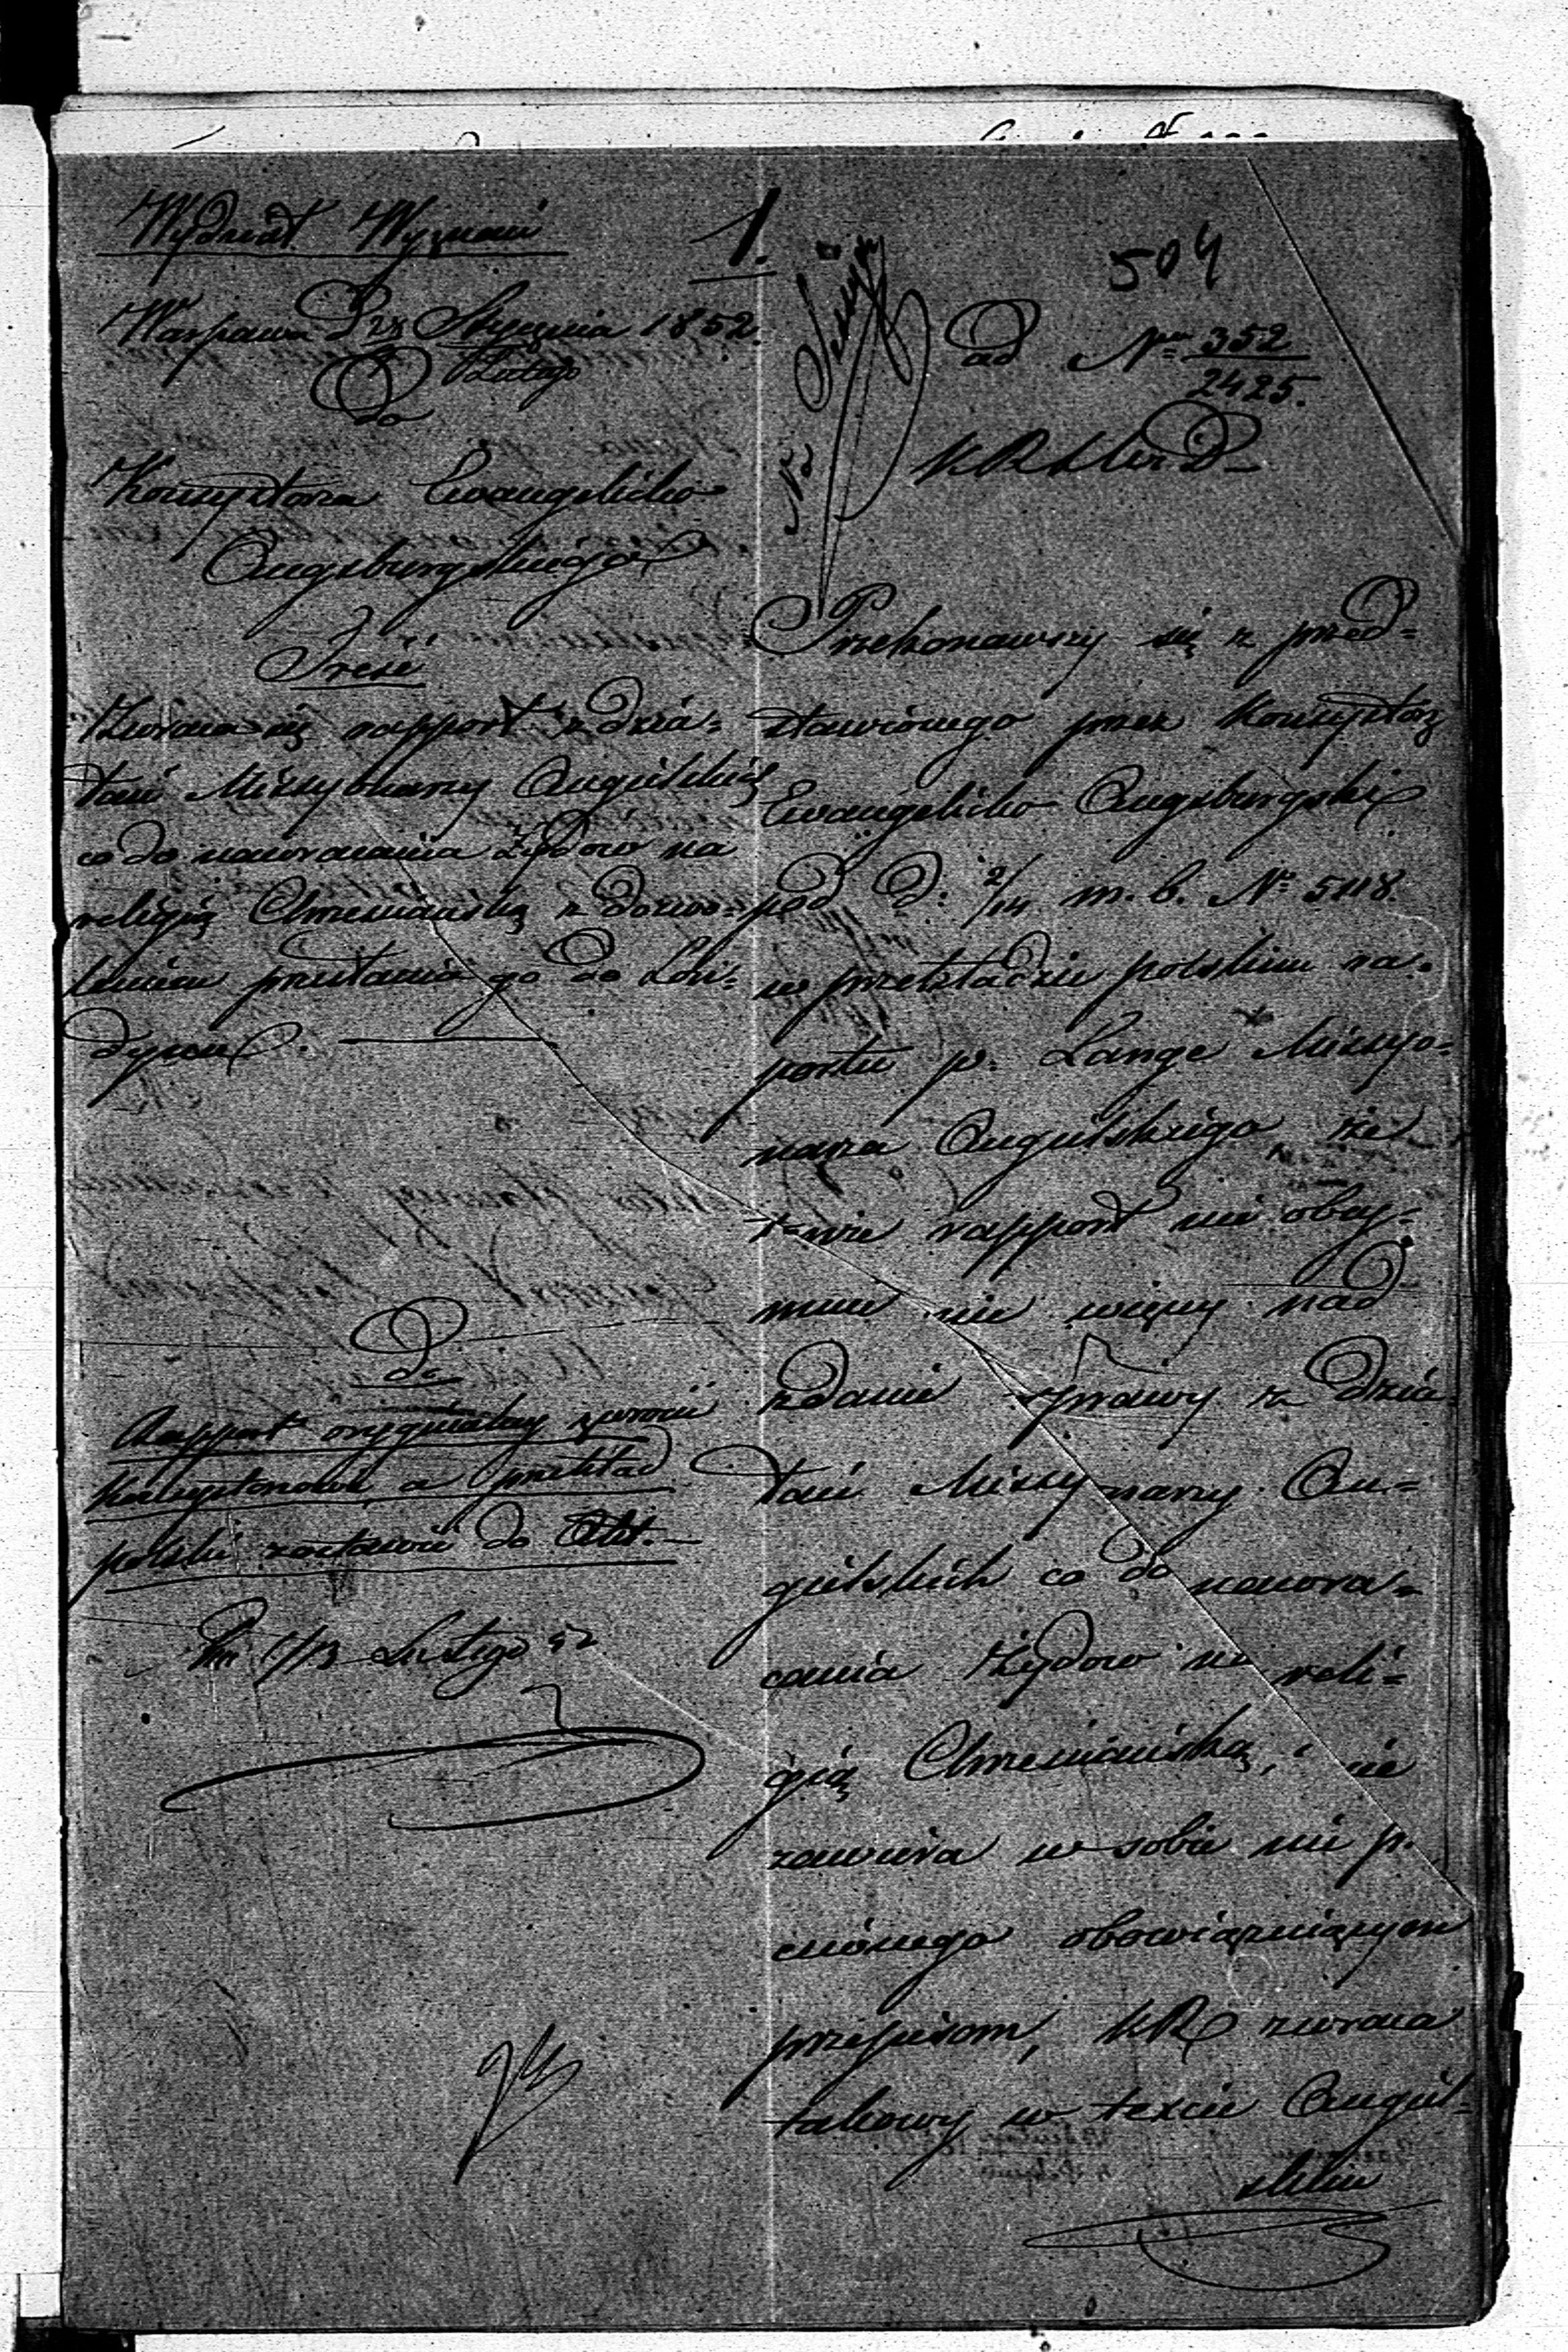 Wydział Wyznań
1.
504
Warszawa D 28 Stycznia 1852.
Lutego
ad Nr 352
2425.
Do
Konsystorza Ewangelicko
Augsburgskiego
Treść
Zwraca się rapport z dzia-
łań Missyonarzy Angielskich
co do nawracania Żydów na
religią Chrześciańską z dozwo-
leniem przesłania go do Lon-
dynu.
Rapport oryginalny zwrócić
Konsystorzowi, a przekład
polski zostawić do Akt.
Lutego 52
Przekonawszy się z przed-
stawionego przez Konsystorz
Ewangelicko Augsburgski
pod d. 2/14 m. b. Nr 5118.
w przekładzie polskim ra-
portu p. Lange Missyo-
narza Angielskiego, że
tenże rapport nie obey-
muie nic więcey nad
zdanie sprawy z dzia
łań Missyonarzy An-
gielskich co do nawra-
cania Żydów na reli-
gią Chrześciańską, i nie
zawiera w sobie nic p.
ciwnego obowiązuiącym
przepisom, KR zwraca
takowy w texcie Angiel-
skim